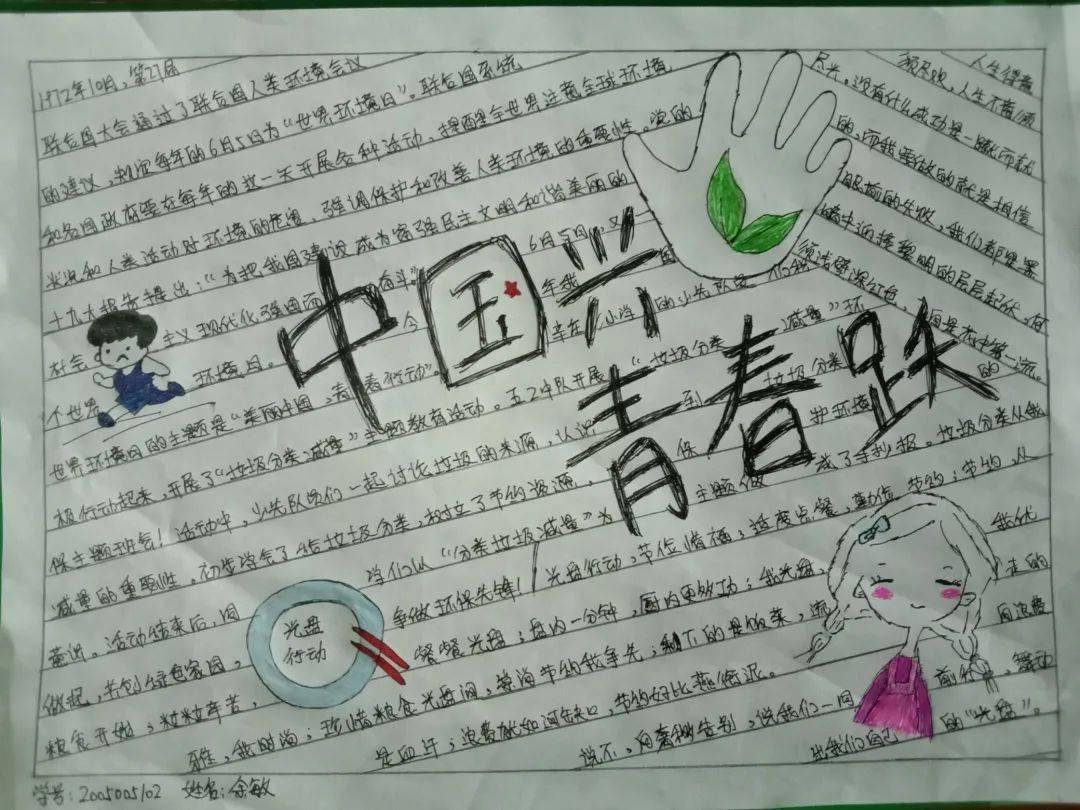 1972年10月,第27届
联合国大会通过了联合国人类环境会议
的建议,规定每年的6月5日为“世界环境日”。联合国系统
和各国政府要在每年的这一天开展各种活动,提醒全世界注意全球环境
状况和人类活动对环境的危害,强调保护和改善人类环境的重要性。党的
十九大报告提出:“为把我国建设成为富强民主文明和谐美丽的
社会 主义现代化强国而 奋斗”。 6月5日,
个世界 环境日。 今 年我
世界环境日的主题是“美丽中国,青春行动” 辛在 小学 的少先队员
极行动起来,开展了“垃圾分类,减量”主题教育活动。五2中队开展“垃圾分类 减量”环
保主题班会!活动中,少先队员们一起讨论垃圾的来源,认识 到 垃圾分类
减量的重要性。初步学会了给垃圾分类,树立了节约资源, 保 护环境
意识。活动结束后,同 学们以“分类垃圾减量”为 主题做 成了手抄报。垃圾分类从我
做起,共创绿色家园, 争做环保先锋!光盘行动,节俭惜福;适度点餐,勤俭 节约;节约 从
粮食开始;粒粒辛苦, 餐餐光盘;盘内一分钟,厨内更多功;我光盘, 我优
雅,我时尚;珍惜粮食光盘润,营淘节约我争先;剩下的是饭菜,流 走的
是血汗;浪费就如河缺口,节约好比燕衔泥。 向浪费
说不,向奢秽告别,说我们一同 前行 舞动
出我们自己 的“光盘”。
人生得意
须尽欢,人生不蓄须
尽兴。没有什么成功是一蹴而就
的,而我要做的就是相信
眼前的失败,我们都要黑
暗中迎接黎明的层层起伏。
中国兴
青春跃
光盘
行动
学号:2005005102 姓名:余敏